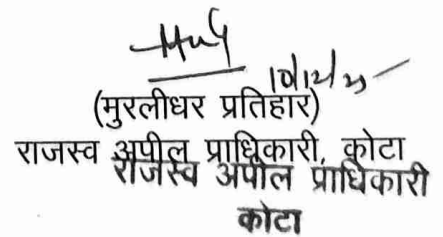 10/12/25
(मुरलीधर प्रतिहार)
राजस्व अपील प्राधिकारी, कोटा
राजस्व अपील प्राधिकारी
कोटा